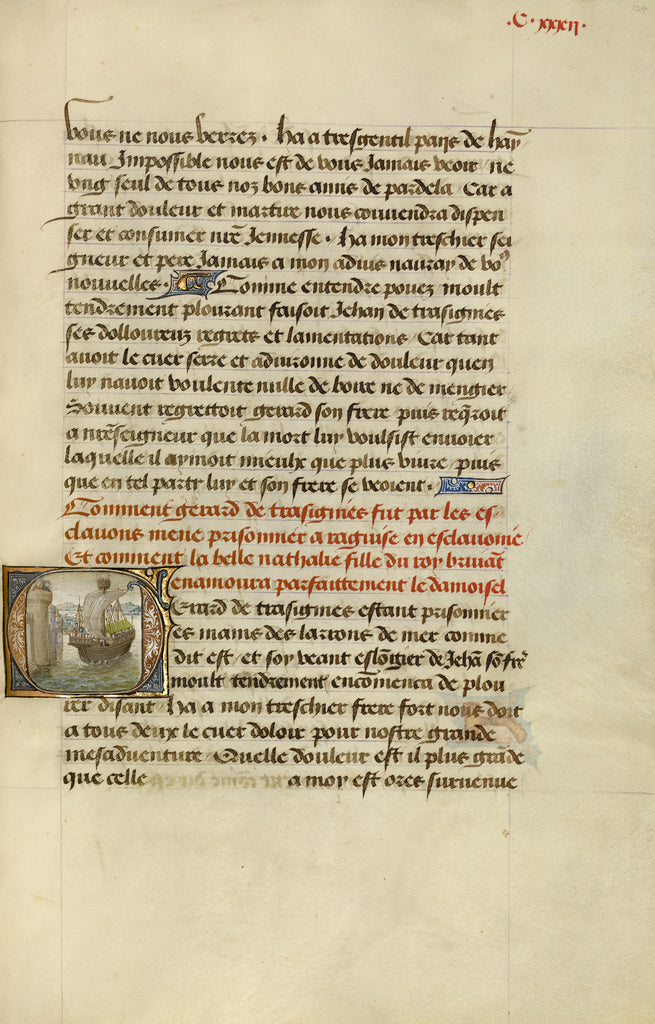 .C. xxxii.
vous ne nous verrez . Ha a tresgentil pays de hay
nau Impossible nous est de vous Jamais veoir ne
ung seul de tous noz bons amis de pardela Car a
grant douleur et martire nous couvendra dispen
ser et consumer nre Jennesse . Ha mon treschier sei
gneur et pere Jamais a mon advis nauray de voz
nouvelles . Comme entendre povez moult
tendrement plourant faisoit Jehan de trasignies
ses dolloureux regretz et lamentations Car tant
avoit le cuer serre et advironne de douleur quen
luy navoit voulente nulle de boire ne de mengier
Souvent regrettoit gerard son frere puis reqroit
a nreseigneur que la mort luy voulsist envoier
laquelle il aymoit mieulx que plus vivre puis
que en tel party luy et son frere se veoient .
Comment gerard de trasignies fut par les es
clavons mene prisonnier a raguise en esclavonie
Et comment la belle nathalie fille du roy bruiant
enamoura parfaittement le damoisel
Gerard de trasignies estant prisonnier
es mains des larrons de mer comme
dit est et soy veant eslongier de Jehan so frer
moult tendrement encomenca de plou
rer disant Ha a mon treschier frere fort nous doit
a tous deux le cuer doloir pour nostre grande
mesadventure Quelle douleur est il plus grade
que celle a moy est ores survenue